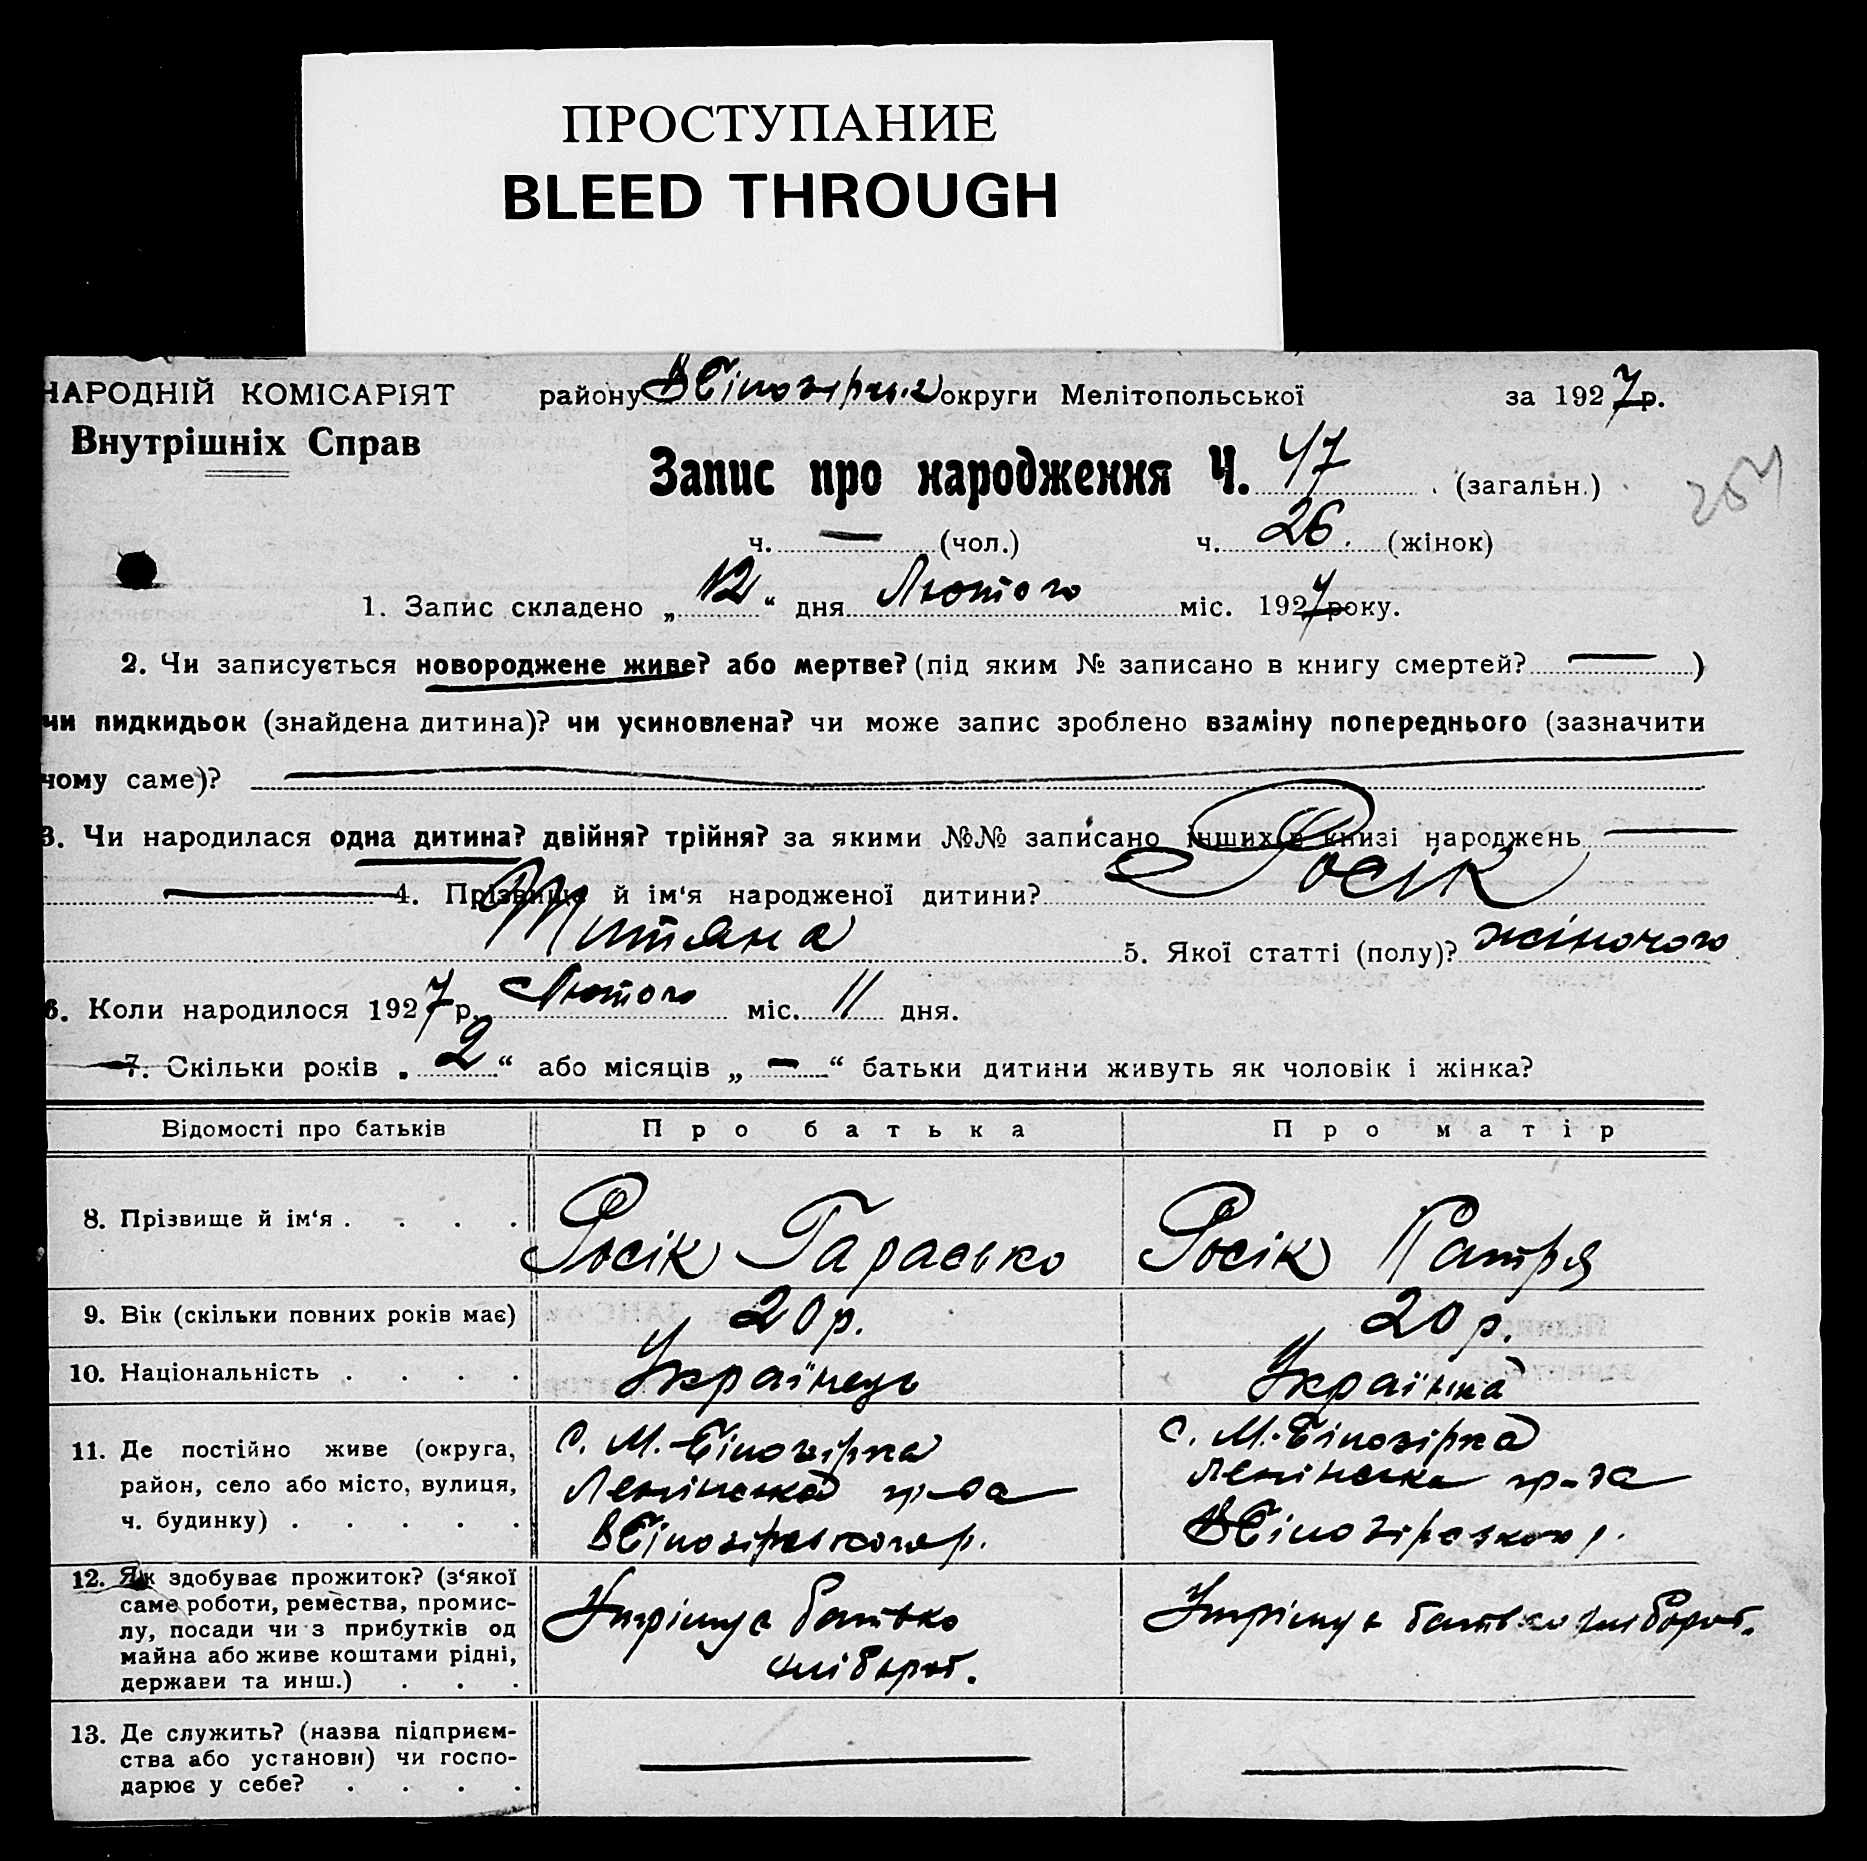 ПРОСТУПАНИЕ
BLEED THROUGH
НАРОДНІЙ КОМІСАРІЯТ району ВБілозірка округи Мелітопольської за 1927р.
Внутрішніх Справ
Запис про народження Ч. 47 (загальн.)
254
ч. — (чол.) ч. 26. (жінок)
1. Запис складено „12“ дня Лютого міс. 1927року.
2. Чи записується новороджене живе? або мертве? (під яким № записано в книгу смертей? — )
чи пидкидьок (знайдена дитина)? чи усиновлена? чи може запис зроблено взаміну попереднього (зазначити
чому саме)? —
3. Чи народилася одна дитина? двійня? трійня? за якими №№ записано інших в книзі народжень —
— 4. Прізвище й ім‘я народженої дитини? Росік
Титяна 5. Якої статті (полу)? жіночого
6. Коли народилося 1927р. Лютого міс. 11 дня.
7. Скільки років „2“ або місяців „—“ батьки дитини живуть як чоловік і жінка?
Відомості про батьків Про батька Про матір
8. Прізвище й ім‘я . . . . Росік Гарасько Росік Патря
9. Вік (скільки повних років має) 20 р. 20 р.
10. Національність . . . . Українець Українка
11. Де постійно живе (округа, с. М.-Білозірка с. М.-Білозірка
район, село або місто, вулиця, Ленінська Ленінська
ч. будинку) . . . . . ВБілозірського р. ВБілозірського р.
12. Як здобуває прожиток? (з‘якої
саме роботи, ремества, промис- Утрімує батько Утрімує батько хлібороб.
лу, посади чи з прибутків од хлібороб.
майна або живе коштами рідні,
держави та инш.) . . .
13. Де служить? (назва підприєм-
ства або установи) чи госпо- — —
дарює у себе? . . . .